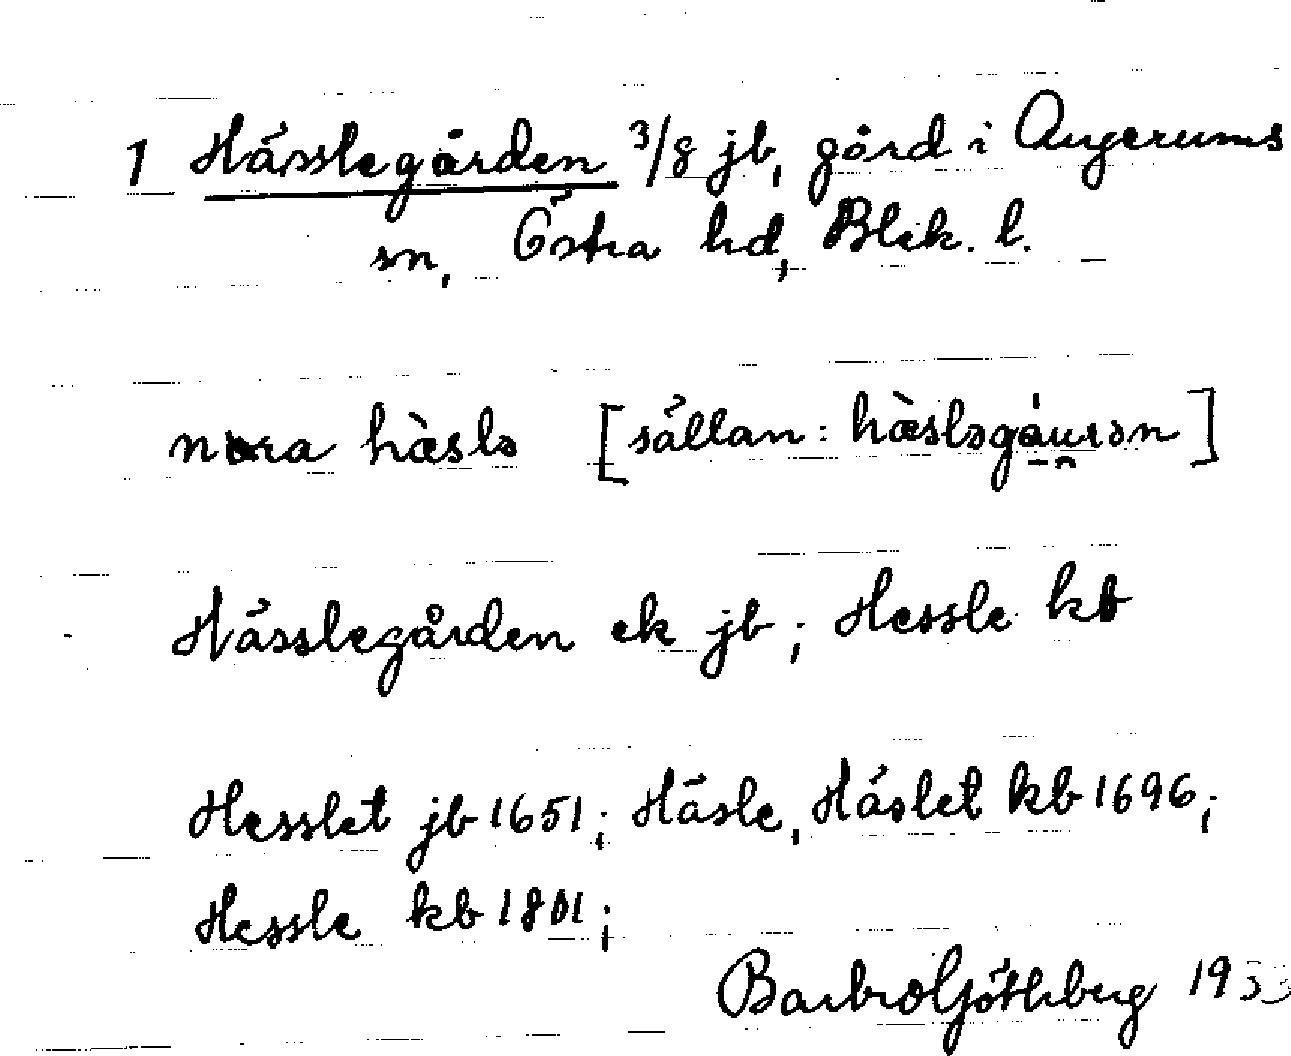 1 Hässlegården 3/8 jb, gård i Augerums
sn, Östra hd, Blek. l.
nora hàslə [sällan: hàsləgáu̯rən]
Hässlegården ek jb; Hessle kb
Hesslet jb 1651; Häsle, Häslet kb 1696;
Hessle kb 1801;
Barbro Göthberg 1953